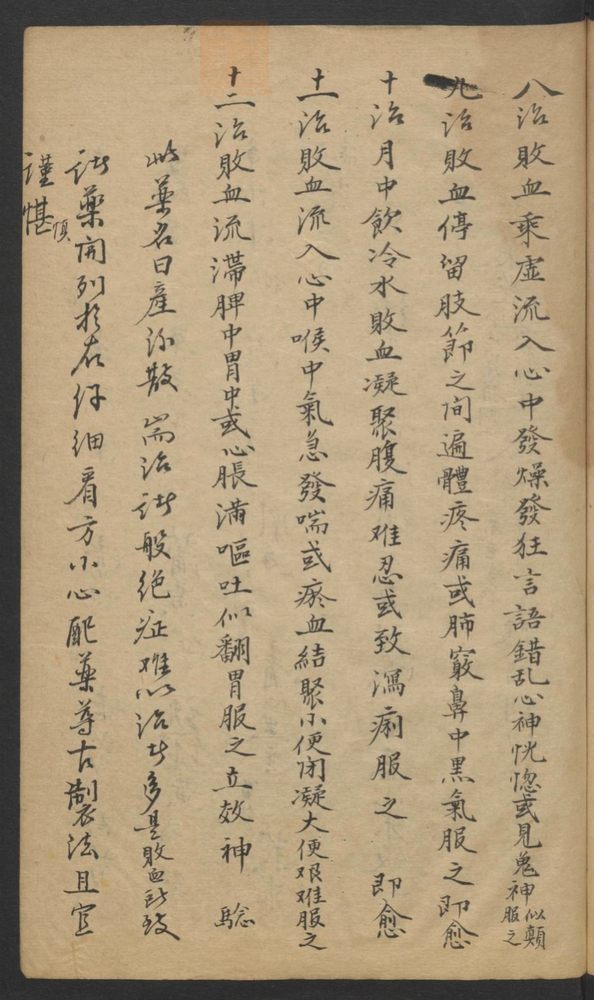 八治敗血乘虛流入心中發燥發狂言語錯乱心神恍惚或見鬼神似顛服之
九治敗血停留肢節之间遍體疼痛或肺竅鼻中黑氣服之即愈
十治月中飲冷水敗血凝聚腹痛难忍或致瀉痢服之即愈
十一治敗血流入心中喉中氣急發喘或瘀血結聚小便闭凝大便艰难服之
十二治敗血流滯脾中胃中或心脹滿嘔吐似翻胃服之立效神驗
此藥名曰產沵散耑治諸般绝症难以治者多是敗血所致
諸藥開列於右仔細看方小心配藥尊古製法且宜
謹慎